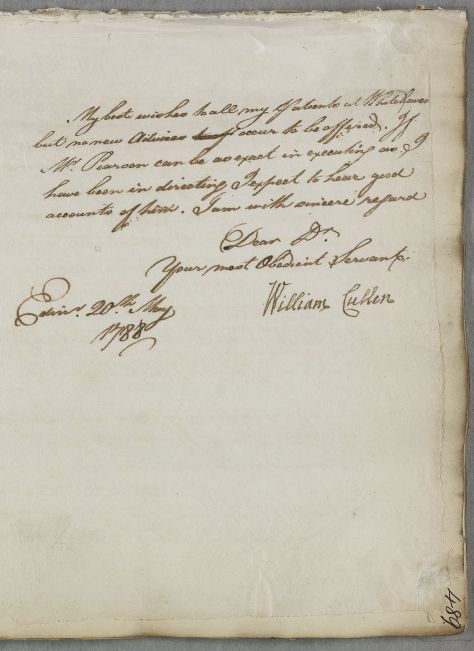 My best wishes to all my Patients at Whitehaven
but no new Advices occur to be offered. If
Mr. Pearson can be as exact in executing as I
have been in directing I expect to hear good
accounts of him. I am with sincere regard
Dear Dr.
Your most Obedient Servant
William Cullen
Edinr. 20th. May
1788
489